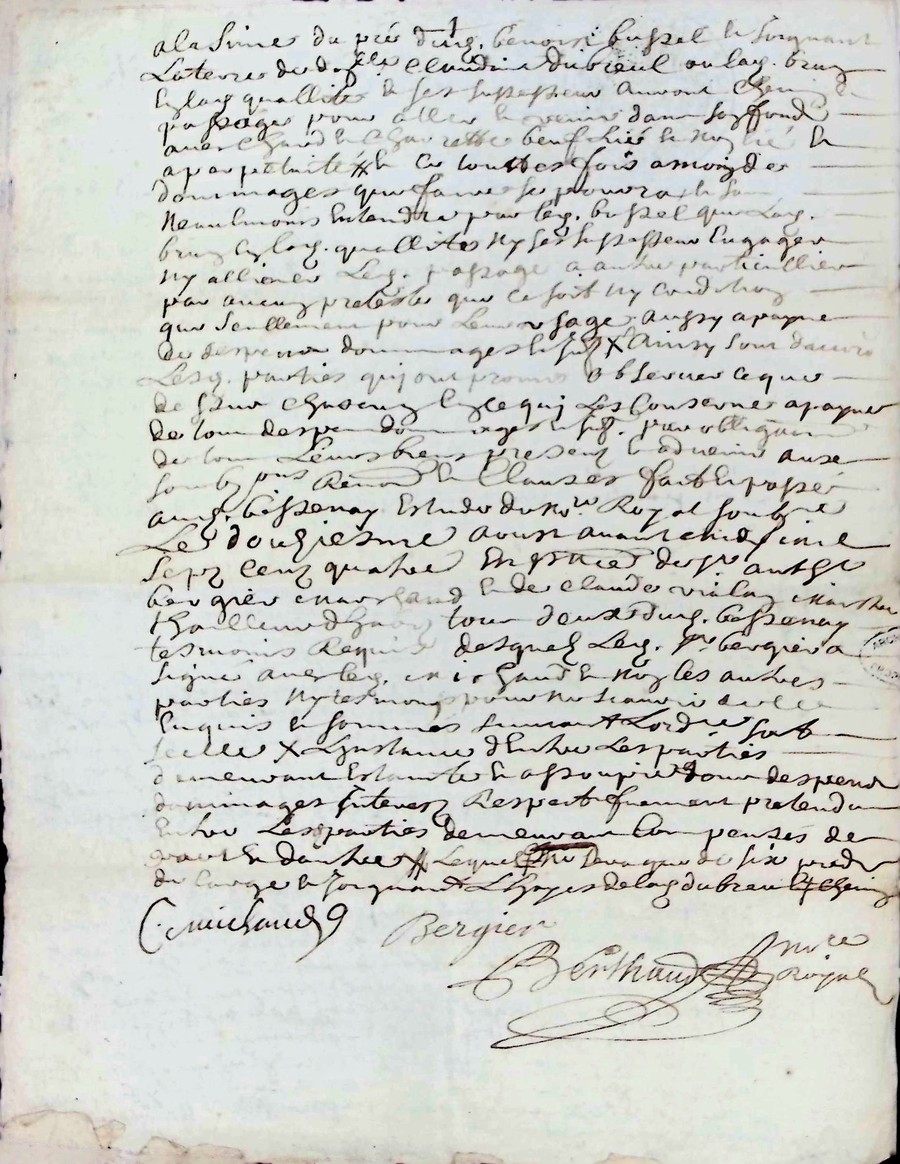 a la sime du pré dud. benoist bussel et joignant
la terre de dlle Claudine dubreul ou lad. brun
en lad. quallité et ses successeur auront chemin de
passage pour aller et venir dans son fond
avec Chard et Charrette beuf lié et non lié et
a perpetuité # et ce touttes fois a moings de
dommages que faire se pourra et sans
neaulmoins entendre par led. bussel que lad.
brun en lad. quallites ny ses successeur engager
ny alliener led. passage a autre particullier
par aucun preteste que ce soit ny condition
que seullement pour leur usage aussy a payne
de despens dommages et in͞t X Ainsy sont d'accord
lesd. parties qui ont promis observer ce que
dessur chascung en ce qui les conserne a payne
de tous despens dommages et in͞t. par obligaon
de tous leurs biens present et advenir auxe
soubmons Renonon et Clauses fait et passé
aud. bessenay estude du nore Royal soubne
Le dougiesme aoust avant midy mil
sept cent quatre En presence de sr anthe
bergier marchand et de claude vialay marchand
thailleur d'habis tous deux dud. bessenay
tesmoins Requis desquels led. sr bergier a
signé avec led. michaud et non les autres
parties ny tesmoings pour ne scavoir de ce
enquis et sommés suivant l'ordre soit
scellé X l'instance d'entre les parties
demeurant estainte et assoupie tous despens
dommages interest Respectifvement pretendu
entre les parties demeurant compensés de
part et d'autre # Lequel sera que de six pieds
de large et joignant l'hayes de lad. dubreul
C. michaud
Bergier
Berthaud nore Royal